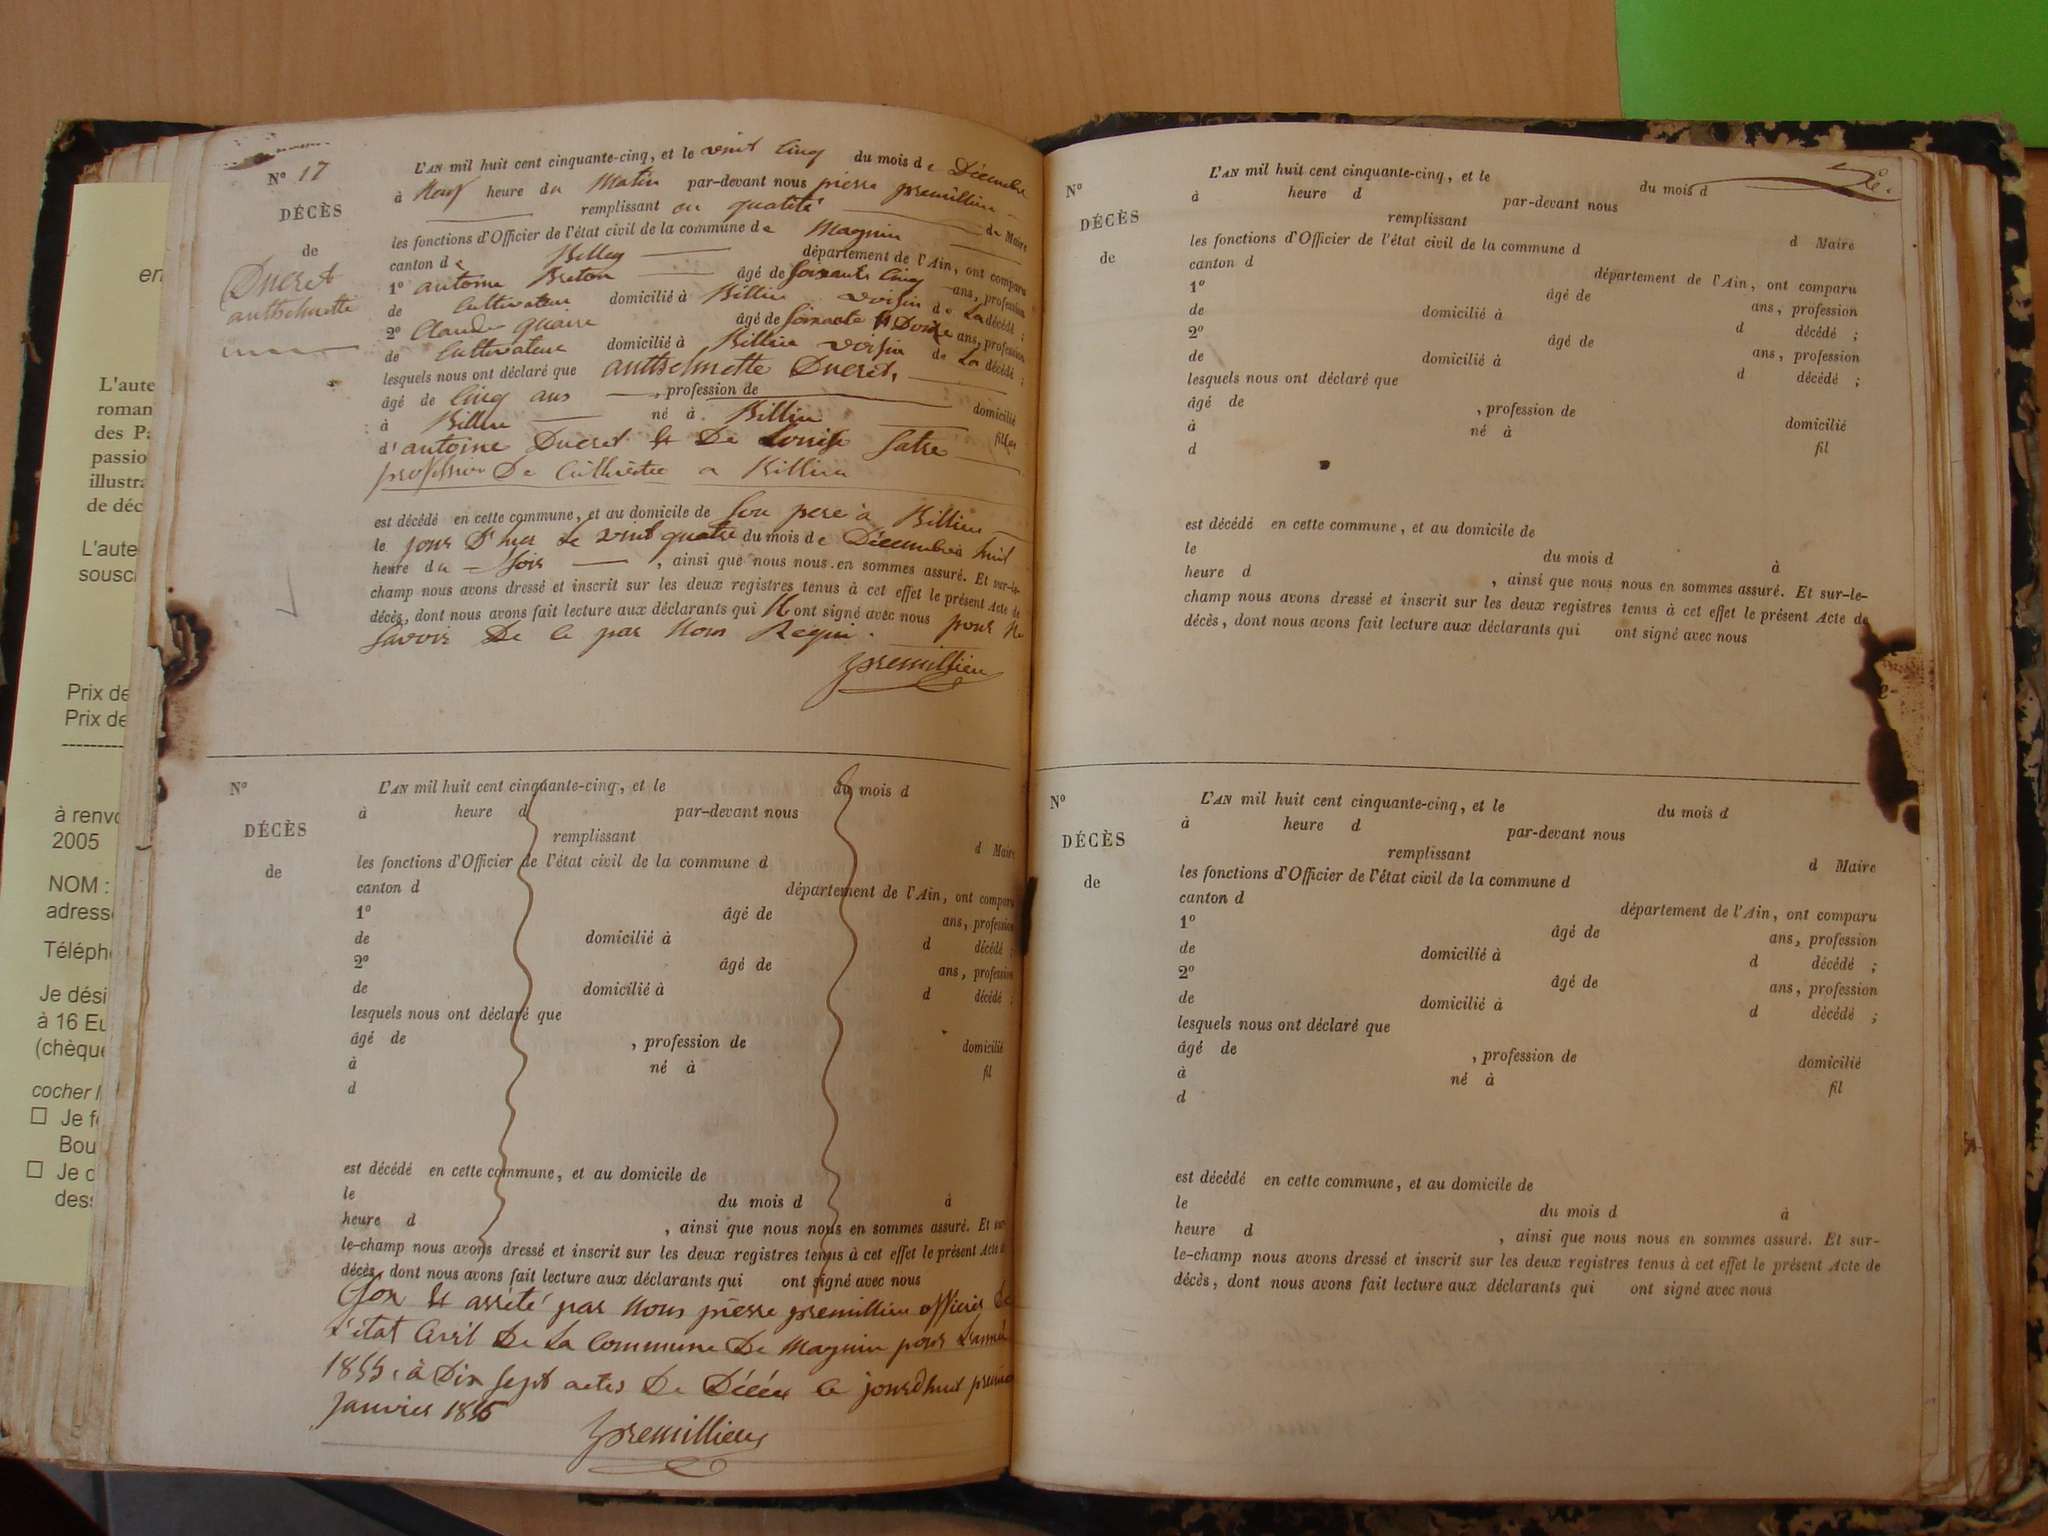 en
L'aute
roman
des Pa
passio
illustra
de déc
L'aute
souscr
Prix de
Prix de
à renvo
2005
NOM :
adresse
Téléph
Je dési
à 16 Eu
(chèque
cocher l
Je f
Bou
Je d
dess
N° 17
DÉCÈS
de
Ducret
anthelmette
L'AN mil huit cent cinquante-cinq, et le vint cinq du mois de Décembre
à neuf heure du matin par-devant nous pierre premillieu
remplissant en qualité de Maire
les fonctions d'Officier de l'état civil de la commune de Magnieu
canton de Belley département de l'Ain, ont comparu
1° antoine Breton âgé de soixante cinq ans, profession
de cultivateur domicilié à Billieu voisin de La décédé ;
2° Claude quaire âgé de soixante & Douze ans, profession
de cultivateur domicilié à Billieu voisin de La décédé ;
lesquels nous ont déclaré que anthelmette Ducret,
âgé de cinq ans , profession de domicilié
à Billieu né à Billieu fille
d'antoine Ducret & De Louise Satre
profession De a Billieu
est décédé en cette commune, et au domicile de son pere à Billieu
le jour D'hier le vint quatre du mois de Décembre à huit
heure du soir , ainsi que nous nous en sommes assuré. Et sur-le-
champ nous avons dressé et inscrit sur les deux registres tenus à cet effet le présent Acte de
décès, dont nous avons fait lecture aux déclarants qui N ont signé avec nous pour ne
savoir De ce par Nous Requi.
premillieu
N°
DÉCÈS
de
L'AN mil huit cent cinquante-cinq, et le du mois d
à heure d par-devant nous
remplissant d Maire
les fonctions d'Officier de l'état civil de la commune d
canton d département de l'Ain, ont comparu
1° âgé de ans, profession
de domicilié à d décédé ;
2° âgé de ans, profession
de domicilié à d décédé ;
lesquels nous ont déclaré que
âgé de , profession de domicilié
à né à fil
d
est décédé en cette commune, et au domicile de
le du mois d à
heure d , ainsi que nous nous en sommes assuré. Et sur-
le-champ nous avons dressé et inscrit sur les deux registres tenus à cet effet le présent Acte d
décès, dont nous avons fait lecture aux déclarants qui ont signé avec nous
Clos & arrêté par Nous pierre premillieu officier De
l'état Civil De La Commune De Magnieu pour L'année
1855, à Dix sept actes De Décés le jourdhuit premier
Janvier 1856
premillieu
N°
DÉCÈS
de
L'AN mil huit cent cinquante-cinq, et le du mois d
à heure d par-devant nous
remplissant d Maire
les fonctions d'Officier de l'état civil de la commune d
canton d département de l'Ain, ont comparu
1° âgé de ans, profession
de domicilié à d décédé ;
2° âgé de ans, profession
de domicilié à d décédé ;
lesquels nous ont déclaré que
âgé de , profession de domicilié
à né à fil
d
est décédé en cette commune, et au domicile de
le du mois d à
heure d , ainsi que nous nous en sommes assuré. Et sur-le-
champ nous avons dressé et inscrit sur les deux registres tenus à cet effet le présent Acte de
décès, dont nous avons fait lecture aux déclarants qui ont signé avec nous
N°
DÉCÈS
de
L'AN mil huit cent cinquante-cinq, et le du mois d
à heure d par-devant nous
remplissant d Maire
les fonctions d'Officier de l'état civil de la commune d
canton d département de l'Ain, ont comparu
1° âgé de ans, profession
de domicilié à d décédé ;
2° âgé de ans, profession
de domicilié à d décédé ;
lesquels nous ont déclaré que
âgé de , profession de domicilié
à né à fil
d
est décédé en cette commune, et au domicile de
le du mois d à
heure d , ainsi que nous nous en sommes assuré. Et sur-
le-champ nous avons dressé et inscrit sur les deux registres tenus à cet effet le présent Acte de
décès, dont nous avons fait lecture aux déclarants qui ont signé avec nous